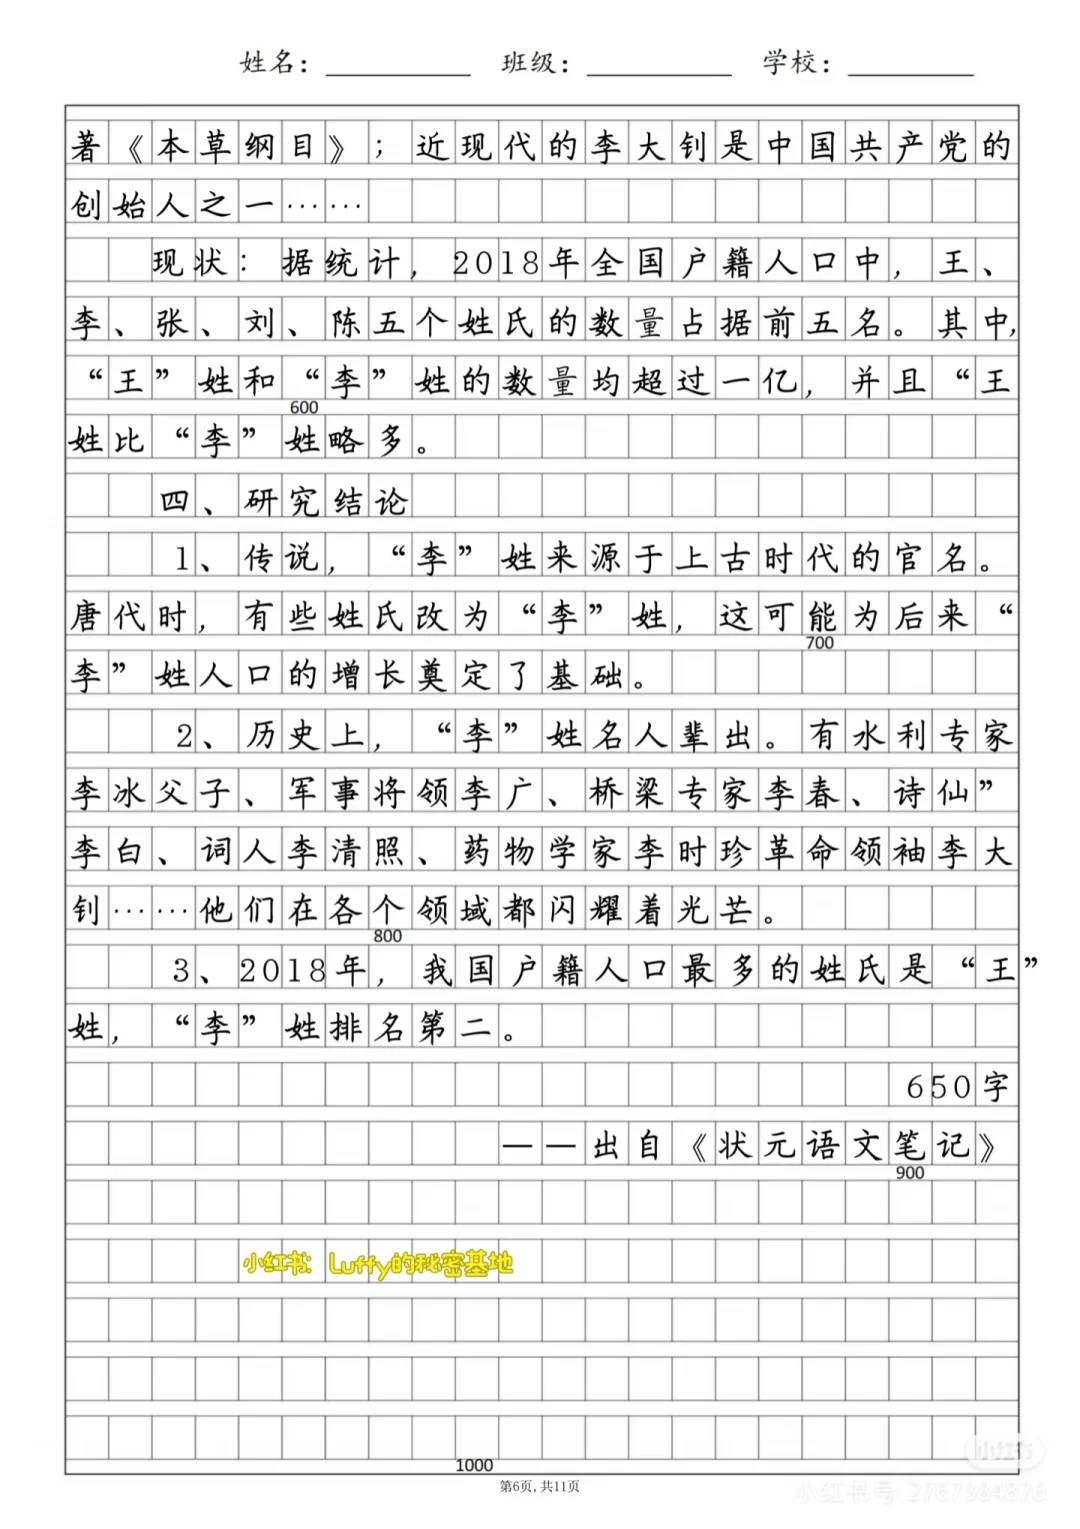 姓名：________ 班级：________ 学校：________
著《本草纲目》；近现代的李大钊是中国共产党的
创始人之一……
现状：据统计，2018年全国户籍人口中，王、
李、张、刘、陈五个姓氏的数量占据前五名。其中，
“王”姓和“李”姓的数量均超过一亿，并且“王
600
姓比“李”姓略多。
四、研究结论
1、传说，“李”姓来源于上古时代的官名。
唐代时，有些姓氏改为“李”姓，这可能为后来“
700
李”姓人口的增长奠定了基础。
2、历史上，“李”姓名人辈出。有水利专家
李冰父子、军事将领李广、桥梁专家李春、诗仙”
李白、词人李清照、药物学家李时珍革命领袖李大
钊……他们在各个领域都闪耀着光芒。
800
3、2018年，我国户籍人口最多的姓氏是“王”
姓，“李”姓排名第二。
650字
——出自《状元语文笔记》
900
小红书：Luffy的秘密基地
1000
第6页,共11页
小红书
小红书号: 2767384876